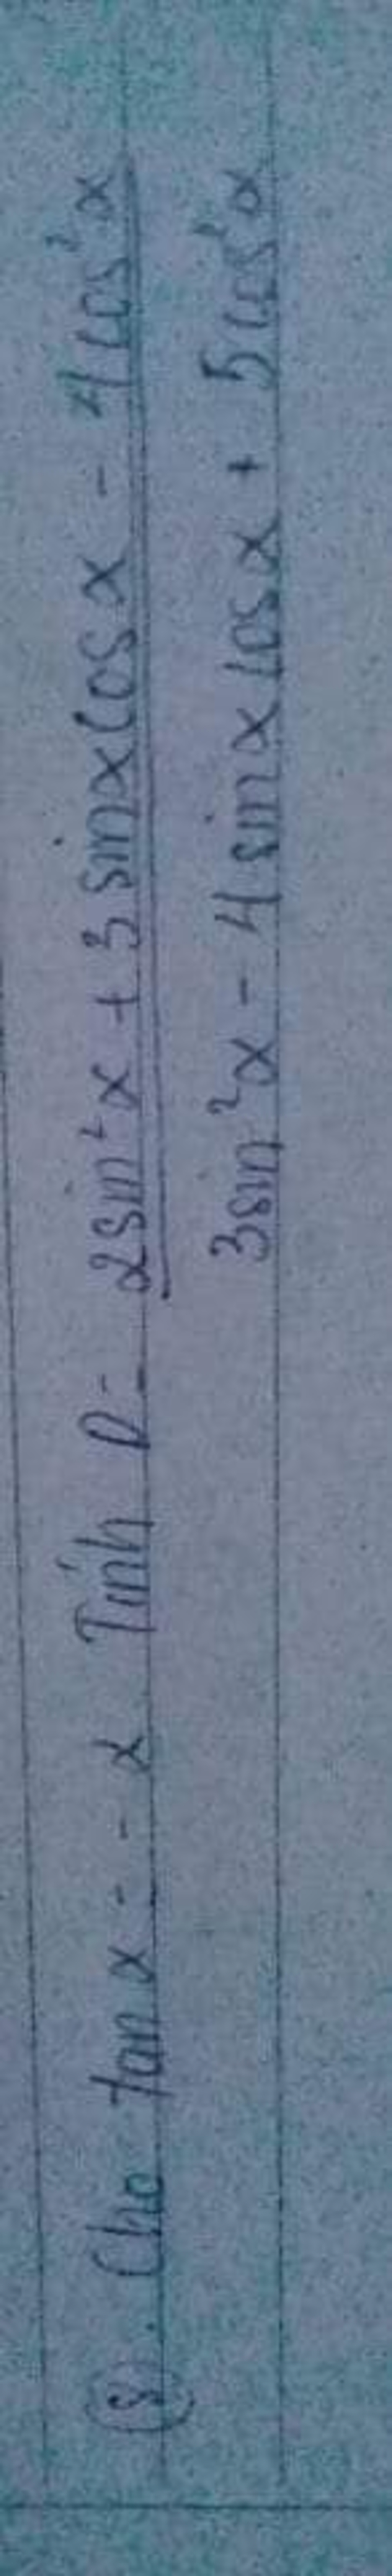 (8). Cho tan x = - 2 Tính P = 2sin²x + 3 sinx cos x - 4 cos²x
3sin²x - 4 sinx cosx + 5 cos²x